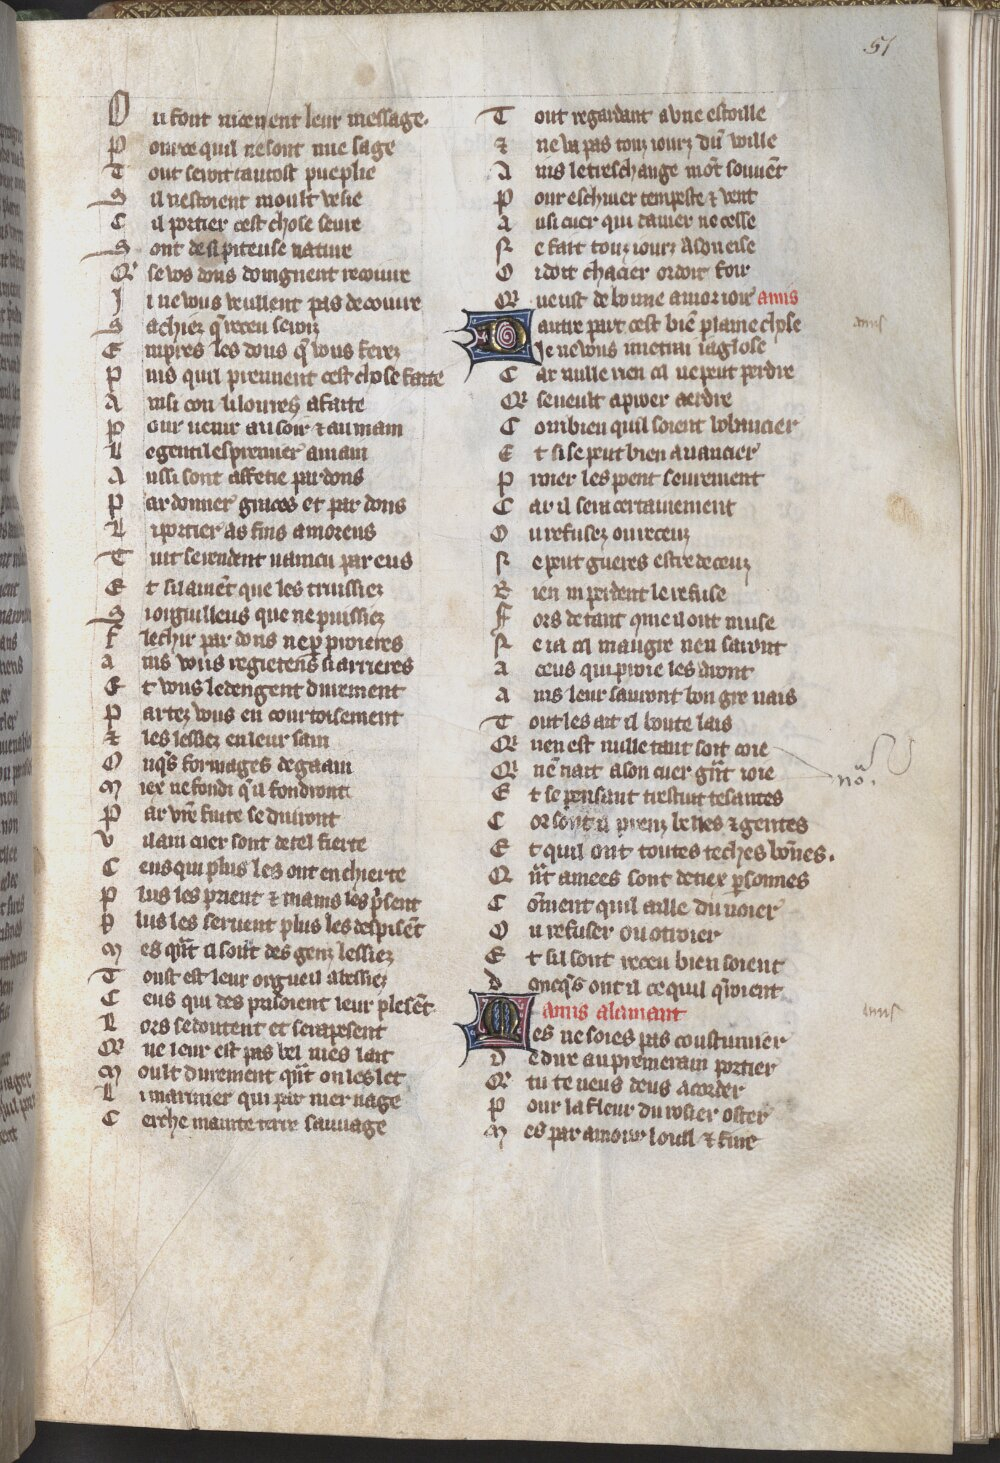 51
Qui font nicement leur message
Pour ce quil ne sont mie sage
Tout seroit tantost pueplie
Sil nestoient moult vesie
Cil portier cest chose seure
Sont de si piteuse nature
Se vos dons doingnent recouure
Ji ne vous veullent pas decouure
Sachiez q̄ receu seroiz
Empres les dons q̄ vous ferez
Puis quil prennent cest chose faite
Ainsi con li lourres afaite
Pour uenir au soir ⁊ au main
Le gentil espreuier a main
Aussi sont affetie par dons
Par donner graces et par dons
Li portier as fins amoreus
Tuit se rendent uaincu par eus
Et sil auiēt que les truissiez
Si orguilleus que ne puissiez
Flechir par dons ne par proieres
ains vous regietens si arrieres
Et vous ledengent durement
Partez vous en courtoisement
⁊ les lessiez en leur sain
Onq̄s formages de gaain
Miex ne fondi q̄ il fondront
Par vr̄e fuite se duiront
Vilain cuer sont de tel fierte
Ceus qui plus les ont en chierte
Plus les prient ⁊ mains les p̄sent
Plus les seruent plus les despisēt
Mes q̄nt il sont des genz lessiez
Toust est leur orgueil abessiez
Ceus qui des prisoient leur plesēt
Lors se doutent et serapesent
Que leur est pas bel mes lait
Moult durement q̄nt on les let
Li marinier qui par mer nage
Cerche mainte terre sauuage
Tout regardant a vne estoille
⁊ ne va pas touz iourz dun voille
Ains le treschange mōt souuēt
Pour eschiuer tempeste ⁊ vent
Ausi cuer qui damer ne cesse
Ne fait touz iourz a son eise
Or doit chacier or doit foir
Qui ueust de bonne amor ioir amis
Dautre part cest biē plaine chose
Je ne vous metrai ia glose
Car nulle rien cil ne peut perdre
Qui se veult a prover aerdre
Combien quil soient bobancier
Et si se peut bien auancier
Prier les peent seurement
Car il sera certainement
Ou refusez ou receuz
Ne peut gueres estre deceuz
Rien ni perdent le refuse
Fors de tant que il ont muse
Ne ia cil maugre nen sauront
a ceus qui proie les auront
ains leur sauront bon gre uais
Tout les ait il boute lais
Quen est nulle tant soit coie
Quē nait a son cuer grāt ioie
Et se pensant trestuit tesantes
Cor sont il preuz belles ⁊ gentes
Et quil ont toutes teches bōnes.
Qn̄t amees sont de tiex p̄sonnes
Cōment quil aille du noier
Ou refuser ou otroier
Et sil sont receu bien soient
Doncq̄s ont il ce quil q̄roient
amis a lamant
Mes ne soies pas coustumier
De dire au premerain portier
Que tu te ueus deus acorder
Pour la fleur du rosier oster
Mes par amour loial ⁊ fine
amis
no.
amis